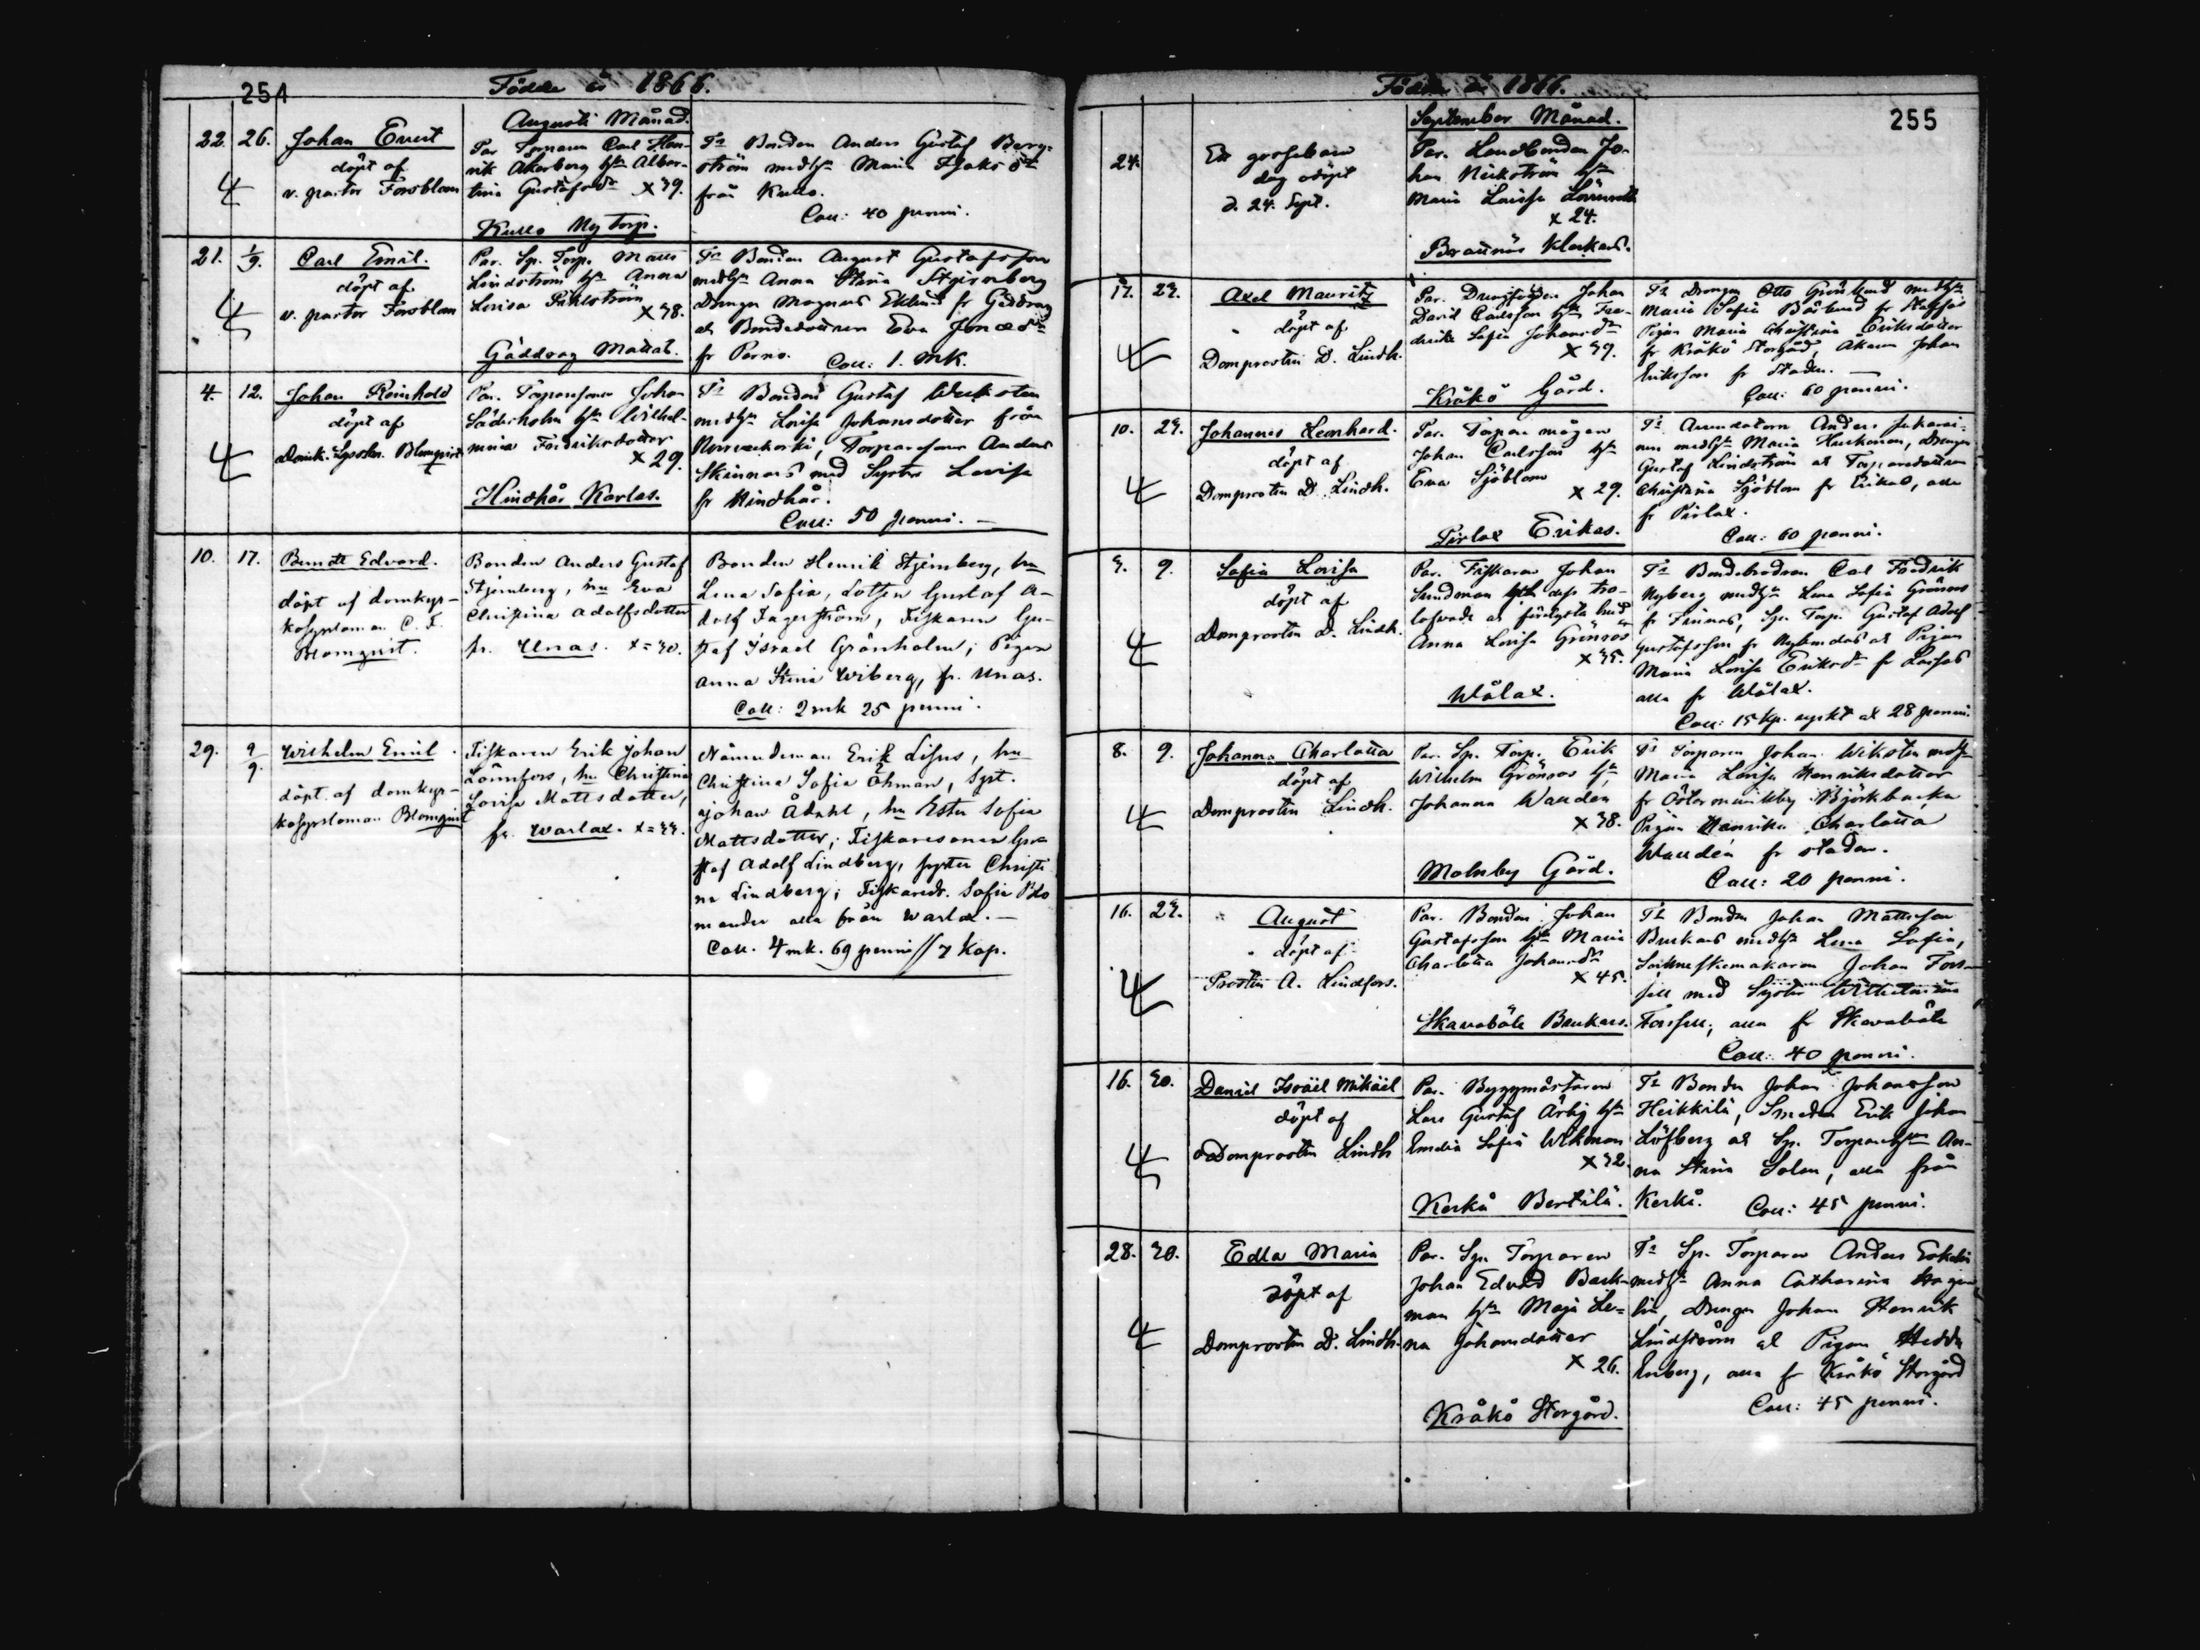 254
Födde år 1866.
Augusti Månad.
22. 26. Johan Evert
döpt af
v. pastor Forsblom
Par Torparen Carl Hen-
rik Åkerberg hu Alber-
tina Gustafsdr x 39.
Kullo Ny Torp.
Fr Bonden Anders Gustaf Berg-
ström med hu Maria
från Kullo.
Coll: 40 penni.
21. 1/9. Carl Emil.
döpt af
v. pastor Forsblom
Par. Sp. Torp. Matts
Lindström hu Anna
Lovisa
x 38.
Gäddrag Mattas.
Fr Bonden August Gustafsson
med hu Anna Stina Stjernberg
Drengen Magnus Eklund fr Gäddrag
at Bondedottren Eva
fr Porno. Coll: 1. Mk.
4. 12. Johan Reinhold
döpt af
Domk. Sysslom. Blomqvist
Par. Torparesonen Johan
Söderholm hu Wilhel-
mina Fredriksdotter
x 29.
Hindhår Karlas.
Fr Bonden Gustaf Wecksten
med hu Lovisa Johansdotter från
Norrveckoski, Torparesonen Anders
Skinnars med Syster Lovisa
fr Hindhår.
Coll: 50 penni. —
10. 17. Berndt Edvard.
döpt af domkyr-
kosysloman C. F.
Blomqvist.
Bonden Anders Gustaf
Stjernberg, hu Eva
Christina Adolfsdotter
fr. Unas. x = 30.
Bonden Henrik Stjernberg, hu
Lena Sofia, Lotsen Gustaf A-
dolf Fagerström, Fiskaren Gu-
staf Israel Grönholm; Pigan
Anna Stina Wiberg, fr. Unas.
Coll: 2 mk 25 penni.
29. 9/9. Wilhelm Emil.
döpt af domkyr-
kosysloman Blomqvist
Fiskaren Erik Johan
Lönnfors, hu Christina
Lovisa Mattsdotter,
fr. Warlax. x = 33.
Nämndeman Erik Lisus, hu
Christina Sofia Öhman, Syst.
Johan Ådahl, hu Ester Sofia
Mattsdotter; Fiskaresonen Gu-
staf Adolf Lindberg, syster Christi
na Lindberg; Fiskaredr. Sofia Blo
mander alla från Warlax. —
Coll. 4 mk. 69 penni // 7 Kop.
Födde år 1866.
255
September Månad.
24. Ett gossebarn
dog odöpt
d. 24. Sept.
Par. Landbonden Jo-
han Wickström hu
Maria Lovisa
x 24.
Klockars.
17. 23. Axel Mauritz
döpt af
Domprosten D. Lindh.
Par. Johan
David Carlsson hu Fre-
drika Sofia Johansdr
x 39.
Kråkö Gård.
Fr Drengen Otto Grönlund med hu
Maria Sofia fr
Pigan Maria Christina Eriksdotter
fr Kråkö Storgård, Åkaren Johan
Eriksson fr Staden. —
Coll: 60 penni.
10. 23. Johannes Leonhard.
döpt af
Domprosten D. Lindh.
Par. Torpare mågen
Johan Carlsson hu
Eva Sjöblom
x 29.
Pirlax Erikas.
Fr Arrendatorn Anders
med hu Maria Drengen
Gustaf Lindström at Torparedottren
Christina Sjöblom fr Erikas, alla
fr Pirlax.
Coll: 60 penni.
3. 9. Sofia Lovisa
döpt af
Domprosten D. Lindh.
Par. Fiskaren Johan
Sundman och dess tro-
lofvade
Anna Lovisa Grönroos
x 35.
Wålax.
Fr Bondebrodren Carl Fredrik
Nyberg med hu Lena Sofia Grönroos
fr Finnas, Sp. Torp. Gustaf Adolf
Gustafsson fr Nylandas at Pigan
Maria Lovisa Eriksdr fr
alla fr Wålax.
Coll: 15 Kp. ryskt at 28 penni.
8. 9. Johanna Charlotta
döpt af
Domprosten Lindh.
Par. Sp. Torp. Erik
Wilhelm Grönroos hu
Johanna Wallden
x 38.
Molnby Gård.
Fr Torparen Johan Wiksten med hu
Maria Lovisa Henriksdotter
fr Östermunkby Björkbacka
Pigan Henrika Charlotta
Walldén fr staden.
Coll: 20 penni.
16. 23. August
döpt af
Prosten A. Lindfors.
Par. Bonden Johan
Gustafsson hu Maria
Charlotta Johansdr
x 45.
Skavaböle Brukars.
Fr Bonden Johan Mattsson
Brukars med hu Lena Sofia,
Sockneskomakaren Johan Fors-
sell med Syster Wilhelmina
Forssell, alla fr Skavaböle
Coll: 40 penni.
16. 30. Daniel Israël Mikäel
döpt af
Domprosten Lindh
Par. Byggmästaren
Lars Gustaf Ärlig hu
Emelia Sofia Wikman
x 32.
Kerko Bertilä.
Fr Bonden Johan Johansson
Heikkilä, Smeden Erik Johan
Löfberg at Sp. Torparehun An-
na Stina Solen, alla från
Kerko. Coll: 45 penni.
28. 30. Edla Maria
döpt af
Domprosten D. Lindh.
Par. Sp. Torparen
Johan Edvard Back-
man hu Maja Le-
na Johansdotter
x 26.
Kråkö Storgård.
Fr Sp. Torparen Anders
med hu Anna Catharina Hage
lin, Drengen Johan Henrik
Lindström at Pigan Hedda
Enberg, alla fr Kråkö Storgård
Coll: 45 penni.